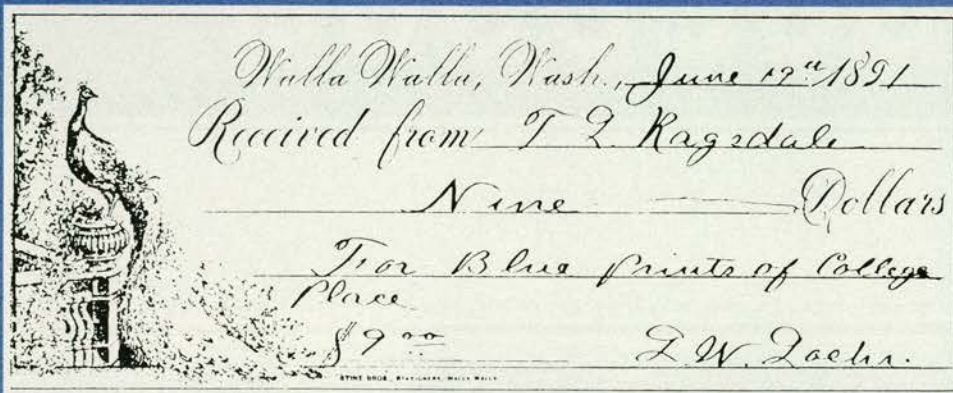 Walla Walla, Wash., June 1891
Received from T. Ragsdale
Nine Dollars
For Blue prints of College
Place
$9 00
W. Loehr.
STINE BROS., STATIONERS, WALLA WALLA